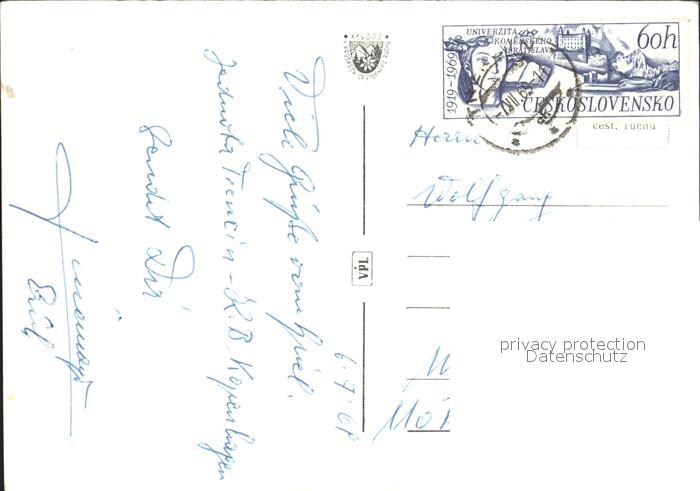 Viele Grüße vom Spiel.
Jednota Trenčín - K.B. Kopenhagen
sendet Dir
Erich
6. 7. 69
UNIVERZITA
KOMENSKÉHO
BRATISLAVA
60h
1919-1969
ČESKOSLOVENSKO
Herrn
Wolfgang
VPL
privacy protection
Datenschutz